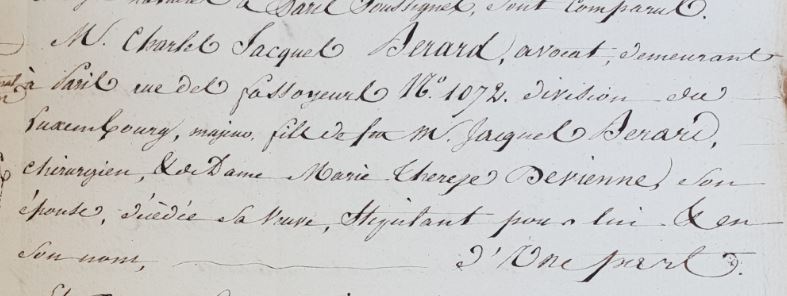 à Paris Soussignés, sont Comparus.
M. Charles Jacques Berard, avocat, demeurant
à Paris rue des fossoyeurs N.º 1072. division du
Luxembourg, majeur, fils de feu M. Jacques Berard,
chirurgien, & de Dame Marie Therese Devienne, son
épouse, décédée sa Veuve, Stipulant pour lui & en
son nom, d'Une part.